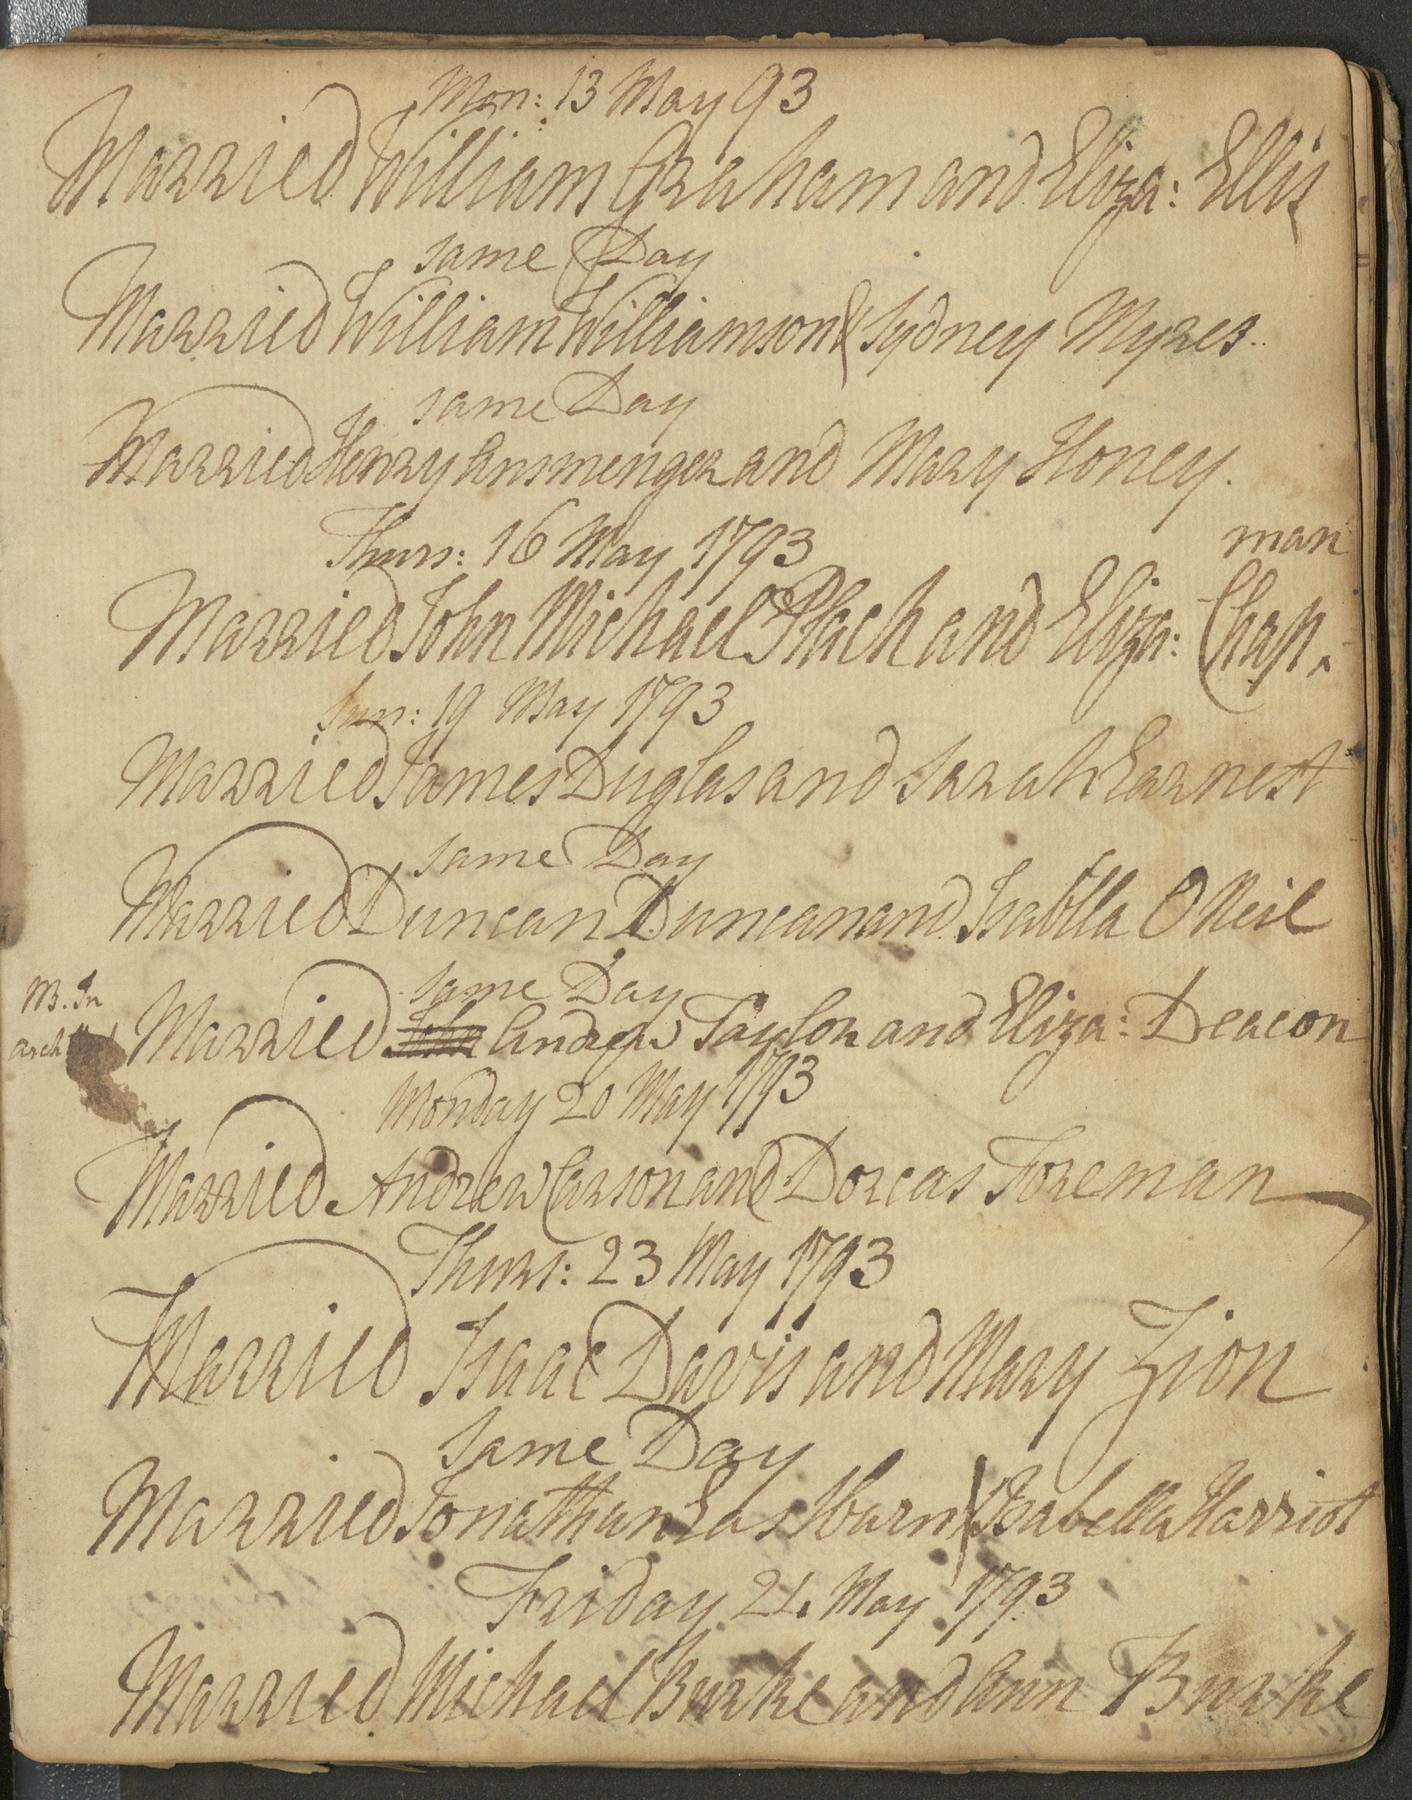 Mon: 13 May 93
Married William Graham and Eliza: Ellis
same Day
Married William Williamson & Sydney Myres..
same Day
Married Henry Ansmenger and Mary Honey.
Thurs: 16 May 1793
man
Married John Michael Plach and Eliza: Chap
Sun: 19 May 1793
Married James Duglas and Sarah Earnest
same Day
Married Duncan Duncan and Isablla O Neil
same Day
M. In
Married John Andrew Taylor and Eliza: Deacon
Monday 20 May 1793
Married Andrew Carson and Dorcas Foreman
Thurs: 23 May 1793
Married Isaac Davis and Mary Zion
same Day
Married Jonathan Eastburn & Isabella Harriot
Friday 24 May 1793
Married Michael Burke and Ann Burke